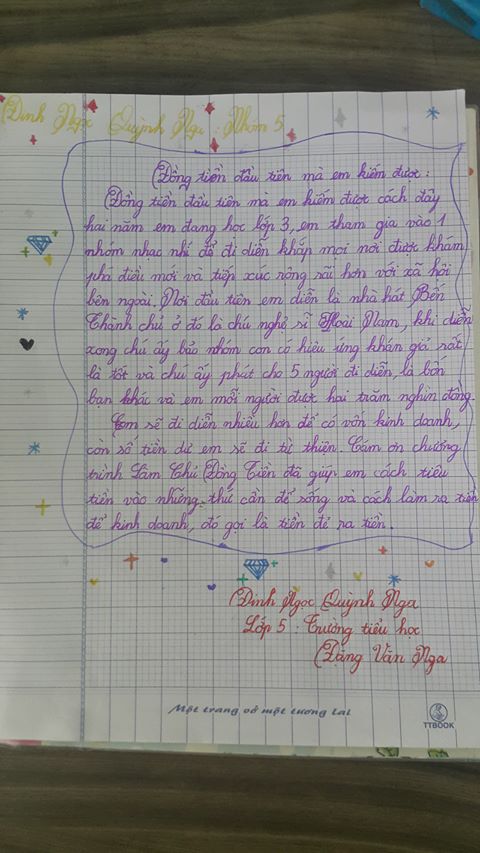 Đinh Ngọc Quỳnh Nga : Nhóm 5
Đồng tiền đầu tiên mà em kiếm được :
Đồng tiền đầu tiên mà em kiếm được cách đây
hai năm em đang học lớp 3, em tham gia vào 1
nhóm nhạc nhí để đi diễn khắp mọi nơi được khám
phá điều mới và tiếp xúc rộng rãi hơn với xã hội
bên ngoài. Nơi đầu tiên em diễn là nhà hát Bến
Thành chủ ở đó là chú nghệ sĩ Hoài Nam, khi diễn
xong chú ấy bảo nhóm con có hiệu ứng khán giả rất
là tốt và chú ấy phát cho 5 người đi diễn, là bốn
bạn khác và em mỗi người được hai trăm nghìn đồng.
Em sẽ đi diễn nhiều hơn để có vốn kinh doanh,
còn số tiền dư em sẽ đi từ thiện. Cám ơn chương
trình Làm Chủ Đồng Tiền đã giúp em cách tiêu
tiền vào những thứ cần để sống và cách làm ra tiền
để kinh doanh, đó gọi là tiền đẻ ra tiền.
Đinh Ngọc Quỳnh Nga
Lớp 5 : Trường tiểu học
Đặng Văn Nga
Một trang vở một tương lai
TTBOOK